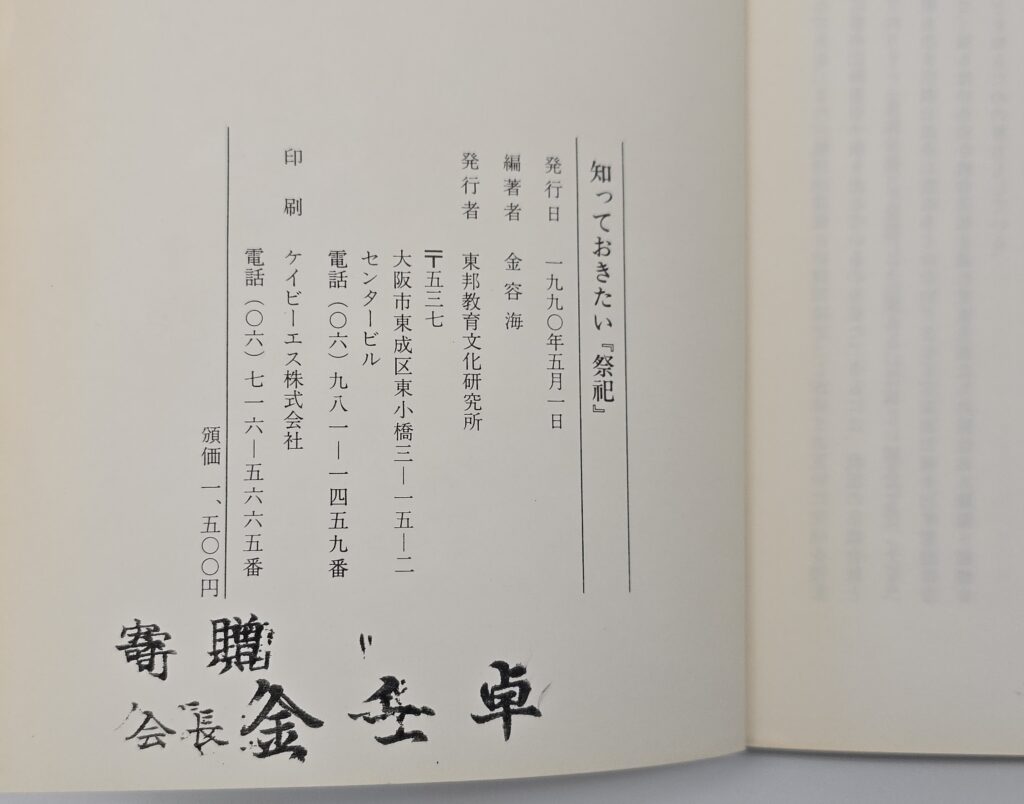 知っておきたい『祭祀』
発行日 一九九〇年五月一日
編著者 金容海
発行者 東邦教育文化研究所
〒五三七
大阪市東成区東小橋三―一五―二
センタービル
電話（〇六）九八一―一四五九番
印刷 ケイビーエス株式会社
電話（〇六）七一六―五六六五番
頒価 一、五〇〇円
寄贈
会長 金 卓